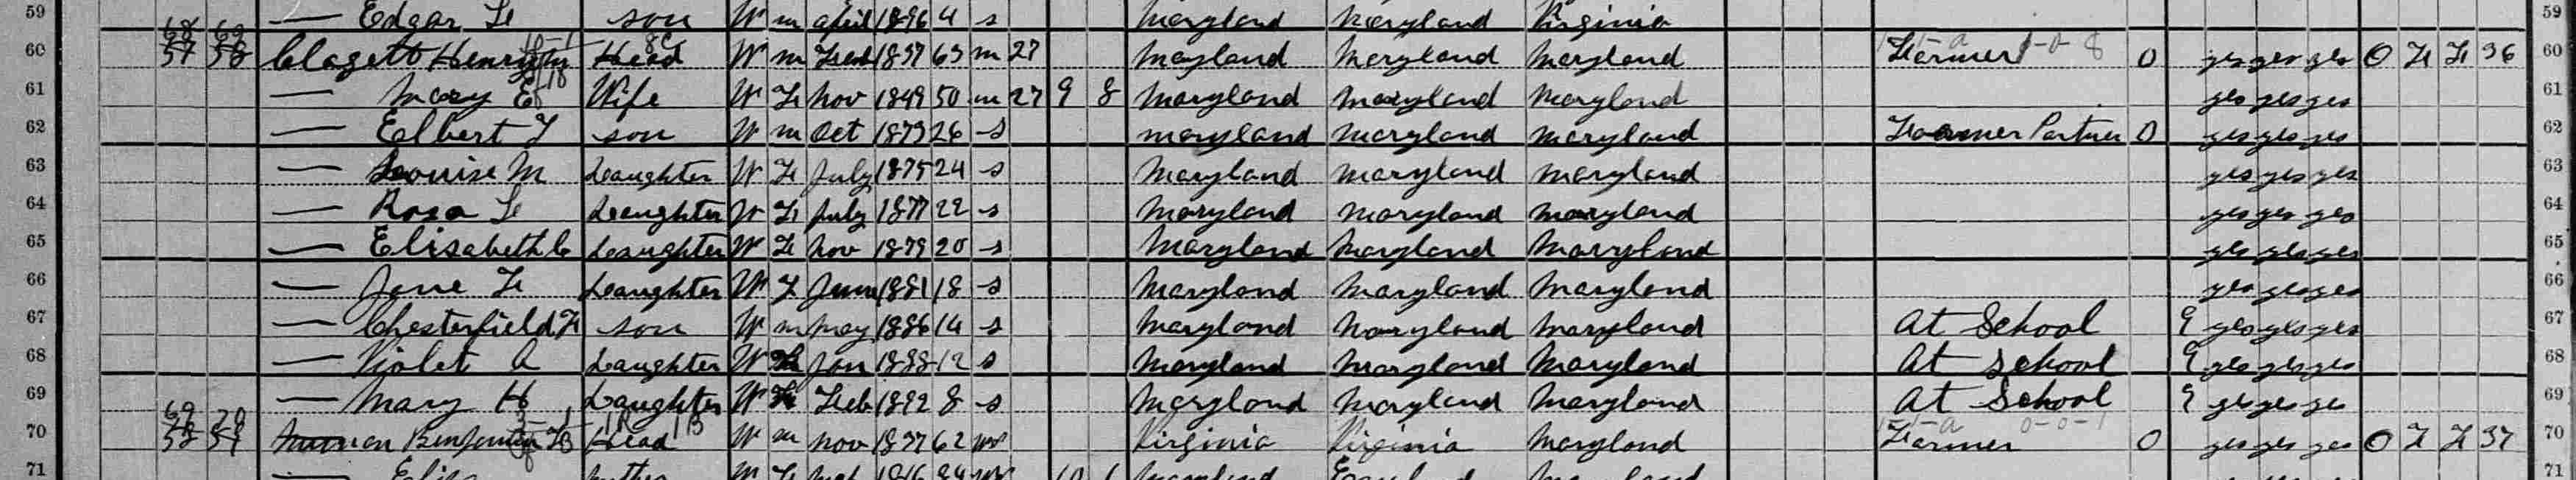 59 — Edgar F son W m april 1896 4 s Maryland Maryland Virginia 59
60 57 58 Clagett Henry Head W m 1837 63 m 27 Maryland Maryland Maryland Farmer 0 yes yes yes O F F 36 60
61 — Mary E Wife W F Nov 1849 50 m 27 9 8 Maryland Maryland Maryland yes yes yes 61
62 — Elbert F son W m Oct 1873 26 s Maryland Maryland Maryland Farmer Partner 0 yes yes yes 62
63 — Louise M Daughter W F July 1875 24 s Maryland Maryland Maryland yes yes yes 63
64 — Rosa F Daughter W F July 1877 22 s Maryland Maryland Maryland yes yes yes 64
65 — Elisabeth C Daughter W F Nov 1879 20 s Maryland Maryland Maryland yes yes yes 65
66 — Jane F Daughter W F June 1881 18 s Maryland Maryland Maryland yes yes yes 66
67 — Chesterfield F son W m may 1886 14 s Maryland Maryland Maryland At School 9 yes yes yes 67
68 — Violet A Daughter W F Jan 1888 12 s Maryland Maryland Maryland At School 9 yes yes yes 68
69 — Mary H Daughter W F Feb 1892 8 s Maryland Maryland Maryland At School 9 yes yes yes 69
70 Benjamin Head W m Nov 1837 62 Virginia Virginia Maryland Farmer 0 yes yes yes O F F 37 70
71 — Eliza mother W F 1816 84 10 Maryland England Maryland 71